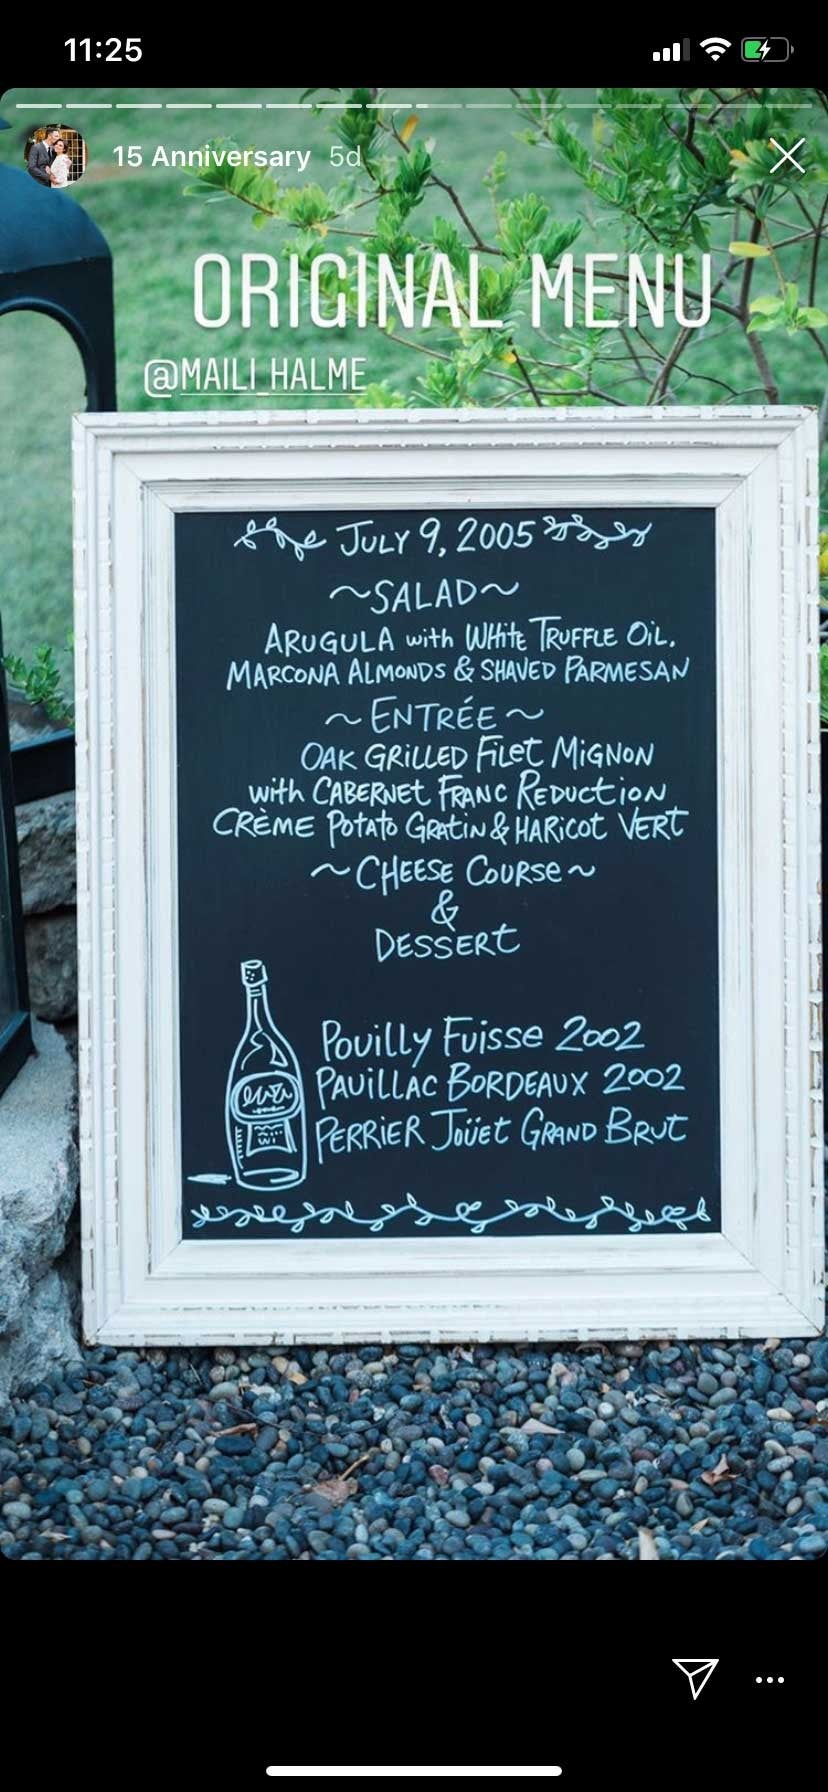 11:25
15 Anniversary 5d
ORIGINAL MENU
@MAILI_HALME
JULY 9, 2005
~SALAD~
ARUGULA with WHite TRUFFLE OiL,
MARCONA ALMONDS & SHAVED PARMESAN
~ENTRÉE~
OAK GRILLED FiLet MiGNON
with CABERNET FRANC REDUCtiON
CRÈME POtAtO GRAtiN & HARiCOt VERT
~CHEESE COURSe~
&
DESSERt
POUiLLY FUiSSe 2002
PAUiLLAC BORDEAUX 2002
PERRiER JOÜET GRAND BRUt